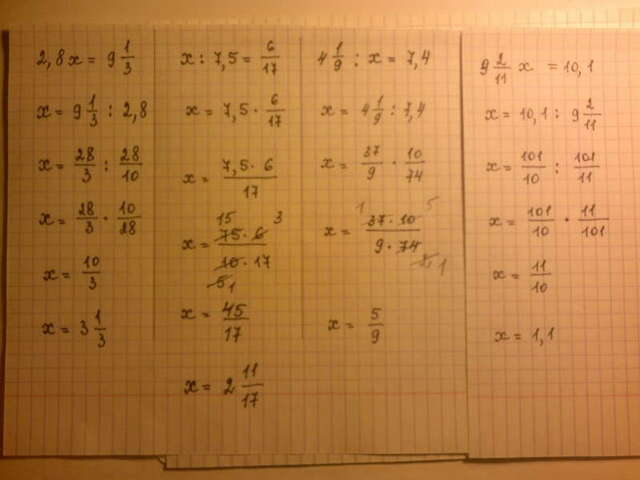 2,8x = 9 1/3
x = 9 1/3 : 2,8
x = 28/3 : 28/10
x = 28/3 · 10/28
x = 10/3
x = 3 1/3
x : 7,5 = 6/17
x = 7,5 · 6/17
x = 7,5 · 6 / 17
15 3
x = 75 · 6 / 10 · 17
5 1
x = 45/17
x = 2 11/17
4 1/9 : x = 7,4
x = 4 1/9 : 7,4
x = 37/9 · 10/74
1 5
x = 37 · 10 / 9 · 74
2 1
x = 5/9
9 2/11 x = 10,1
x = 10,1 : 9 2/11
x = 101/10 : 101/11
x = 101/10 · 11/101
x = 11/10
x = 1,1